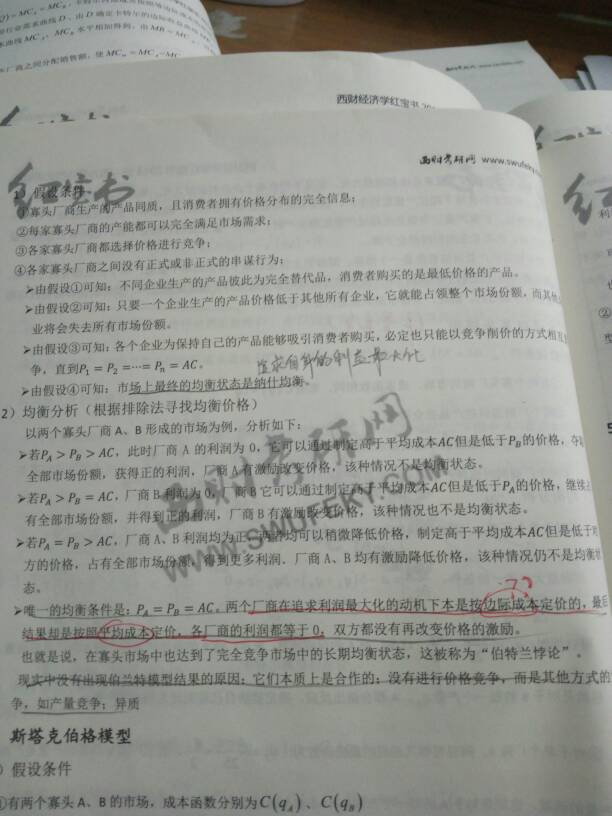 西财经济学红宝书
西财考研网 www.swufeky.
红宝书
1）假设条件
①寡头厂商生产的产品同质，且消费者拥有价格分布的完全信息；
②每家寡头厂商的产能都可以完全满足市场需求；
③各家寡头厂商都选择价格进行竞争；
④各家寡头厂商之间没有正式或非正式的串谋行为；
➢由假设①可知：不同企业生产的产品彼此为完全替代品，消费者购买的是最低价格的产品。
➢由假设②可知：只要一个企业生产的产品价格低于其他所有企业，它就能占领整个市场份额，而其他
业将会失去所有市场份额。
➢由假设③可知：各个企业为保持自己的产品能够吸引消费者购买，必定也只能以竞争削价的方式相互
争，直到P₁ = P₂ = ⋯ = Pₙ = AC。
追求自身的利益最大化
➢由假设④可知：市场上最终的均衡状态是纳什均衡。
2）均衡分析（根据排除法寻找均衡价格）
以两个寡头厂商 A、B 形成的市场为例，分析如下：
➢若P_A > P_B > AC，此时厂商 A 的利润为 0，它可以通过制定高于平均成本AC但是低于P_B的价格，夺
全部市场份额，获得正的利润，厂商 A 有激励改变价格，该种情况不是均衡状态。
➢若P_A > P_B = AC，厂商 B 利润为 0，厂商 B 它可以通过制定高于平均成本AC但是低于P_A的价格，继续
有全部市场份额，并得到正的利润，厂商 B 有激励改变价格，该种情况也不是均衡状态。
➢若P_A = P_B > AC，厂商 A、B 利润均为正，两者均可以稍微降低价格，制定高于平均成本AC但是低于
方的价格，占有全部市场份额，得到更多利润．厂商 A、B 均有激励降低价格，该种情况仍不是均衡状
态。
➢唯一的均衡条件是：P_A = P_B = AC。两个厂商在追求利润最大化的动机下本是按边际成本定价的，最后
结果却是按照平均成本定价，各厂商的利润都等于 0，双方都没有再改变价格的激励。
也就是说，在寡头市场中也达到了完全竞争市场中的长期均衡状态，这被称为“伯特兰悖论”。
现实中没有出现伯兰特模型结果的原因：它们本质上是合作的；没有进行价格竞争，而是其他方式的
争，如产量竞争；异质
斯塔克伯格模型
）假设条件
①有两个寡头 A、B 的市场，成本函数分别为C(q_A)、C(q_B)
西财考研网
www.swufeky.com